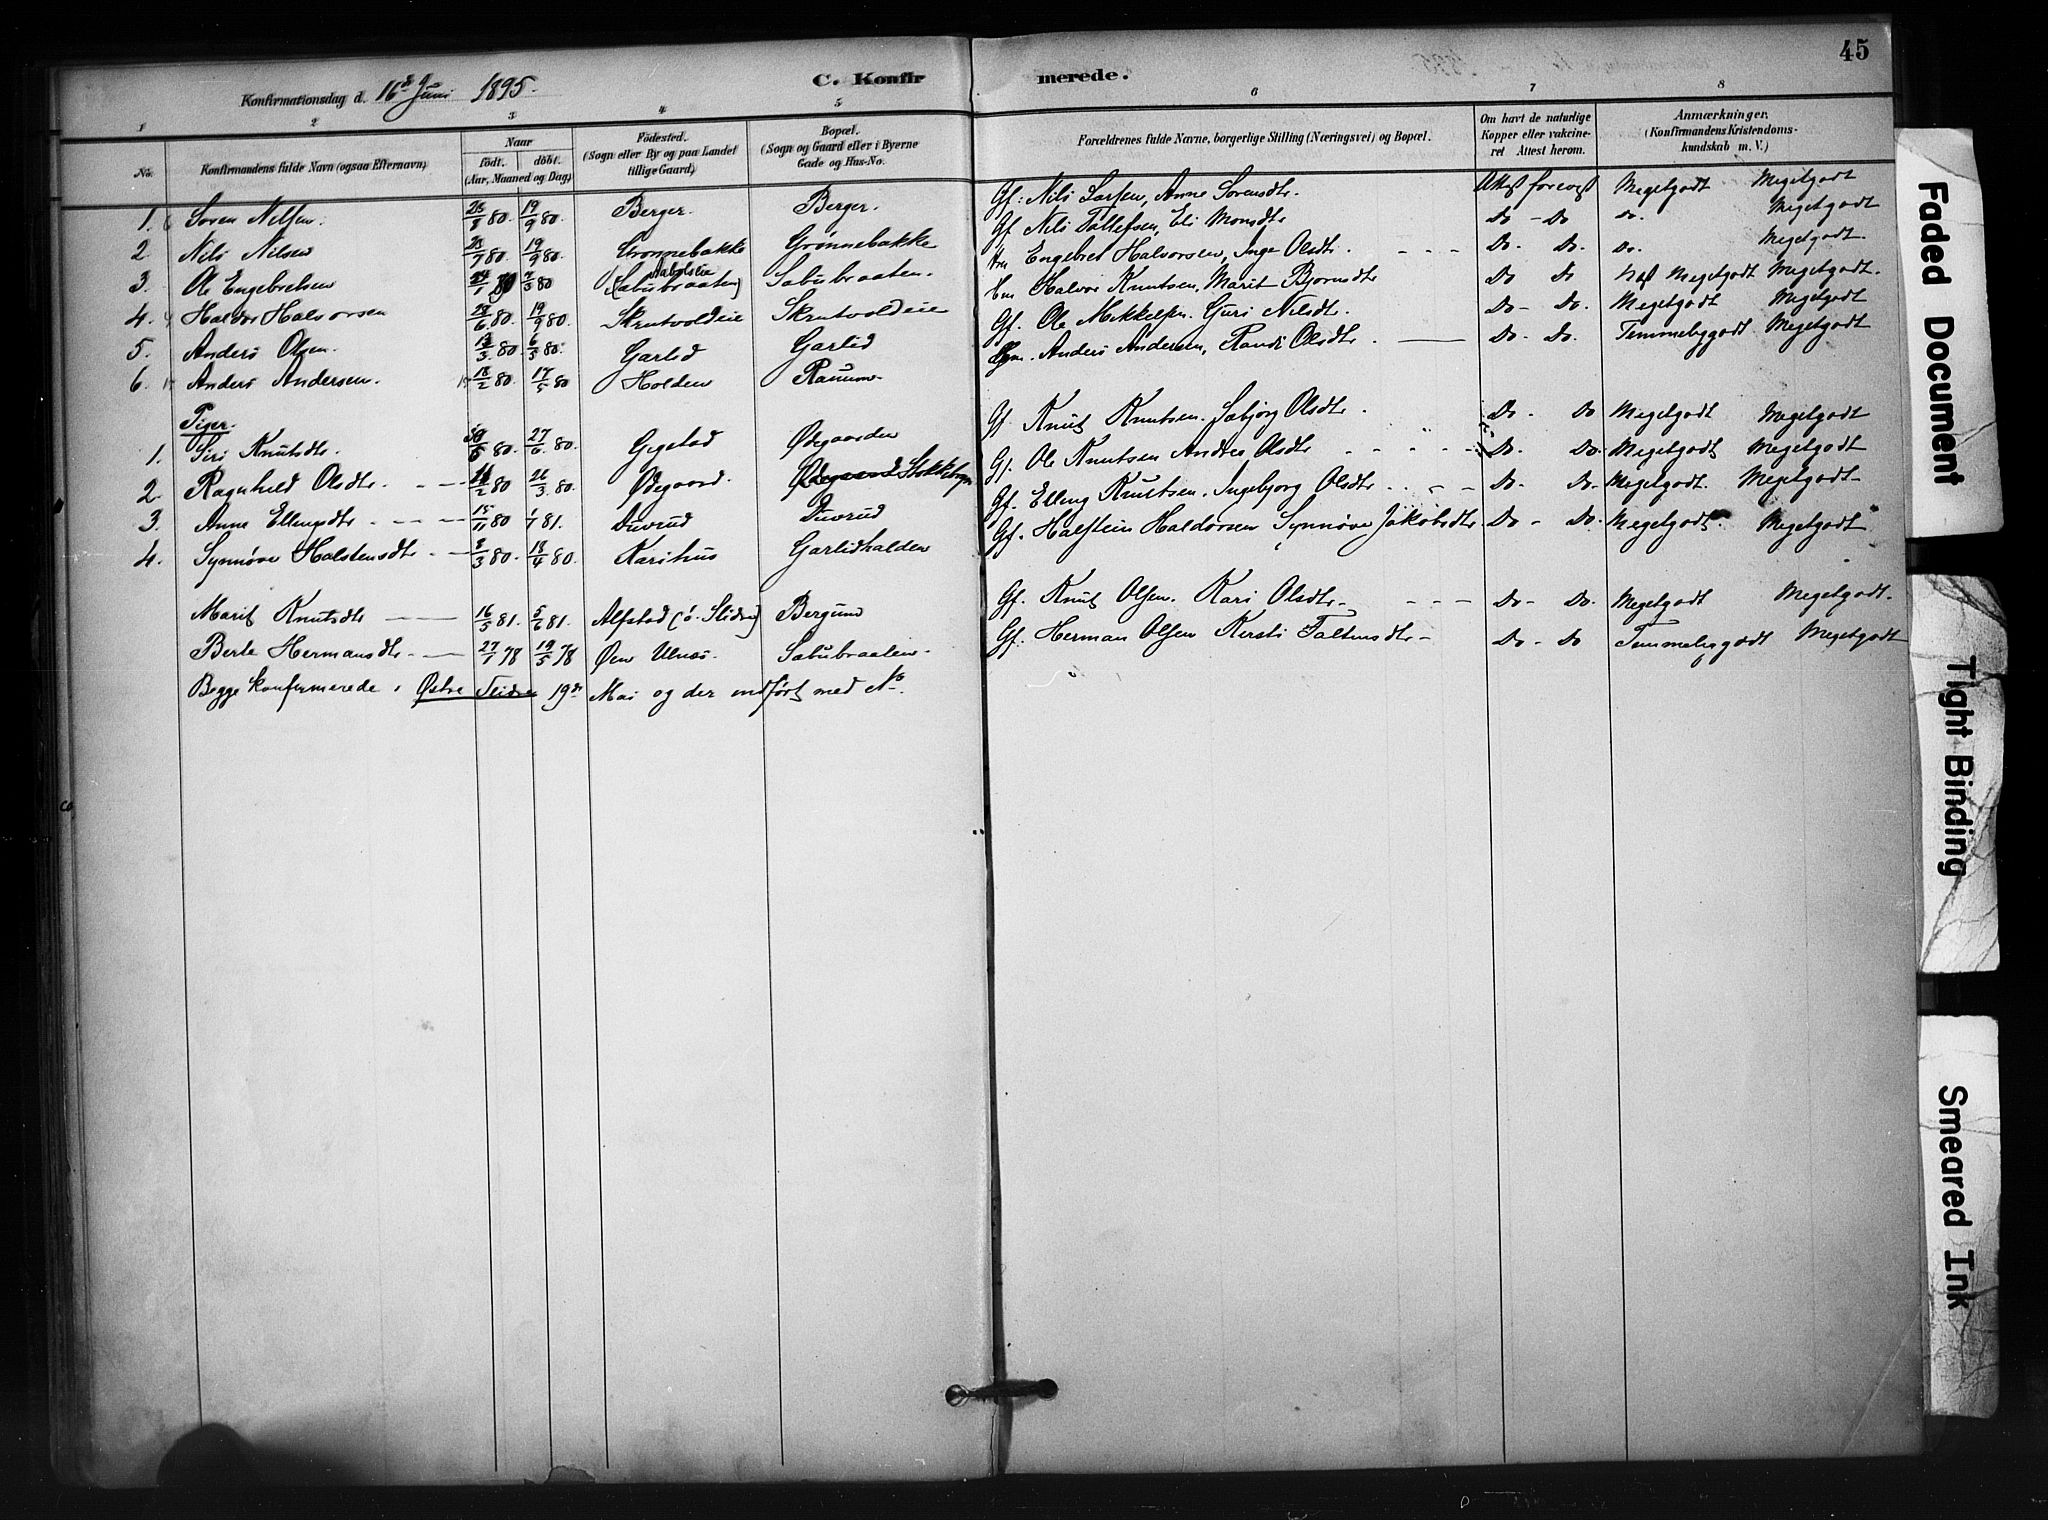 45
Konfirmationsdag d. 16de Juni 1895.
C. Konfirmerede.
1 2 3 4 5 6 7 8
No. Konfirmandens fulde Navn (ogsaa Efternavn) Naar født. døbt. (Aar, Maaned og Dag) Fødested. (Sogn eller By og paa Landet tillige Gaard.) Bopæl. (Sogn og Gaard eller i Byerne Gade og Hus-No. Forældrenes fulde Navne, borgerlige Stilling (Næringsvei) og Bopæl. Om havt de naturlige Kopper eller vakcineret Attest herom. Anmærkninger. (Konfirmandens Kristendomskundskab m. V.)
1. Søren Nilsen. 80. 19/9 80. Berger. Berger. Gf: Nils Larsen, Anne Sørensdtr. Attest forevist Megetgodt Megetgodt
2 Nils Nilsen 80. 19/9 80. Grønnebakke Grønnebakke Gf Nils Tollefsen, Eli Monsdtr Do - Do do. Megetgodt
3. Ole Engebretsen 7/3 80 (Sabubraaten) Sabubraaten. Engebret Halvorsen, Inge Olsdtr. - - - Do. Do. do. Megetgodt.
4. Haldor Halvorsen 6 80. 19/9 80. Skrutvoldeie Skrutvoldeie Hm Halvor Knutsen, Marit Bjørnsdtr Do Do Megetgodt Megetgodt.
5. Anders Olsen. 13/3 80. 6/5 80. Garlid Garlid Gf. Ole Mikkelsen. Guri Nilsdtr. Do - Do. Megetgodt Megetgodt
6. Anders Andersen. 18/2 80. 17/5 80 Holden Ranum Anders Andersen, Randi Olsdtr. — Do. Do. Temmeliggodt Megetgodt
Piger.
1. Siri Knutsdtr. 30/5 80. 27/6 80. Gigstad Ødegaarden Gf. Knut Knutsen. Olsdtr. Do - Do Megetgodt Megetgodt
2. Ragnhild Olsdtr. - - 2 80 26/3 80. Ødegaard. Ødegaard Gf. Ole Knutsen Olsdtr - - - - Do. Do. Megetgodt Megetgodt
3. Anne Ellingsdtr - - - 15/11 80 1/1 81. Duvrud Duvrud Gf. Elling Knutsen. Ingebjørg Olsdtr - - - Do - Do. Megetgodt. Megetgodt.
4. Synnøve Halstensdtr - - 8/3 80. 18/4 80. Karihus Garlidhalden Gf. Halstein Haldorsen Synnøve Jakobsdtr Do - Do. Megetgodt Megetgodt
Marit Knutsdtr —— 16/5 81. 5/6 81. Alfstad (ø. Slidre) Bergund Gf. Knut Olsen. Kari Olsdtr - - - - Do - Do. Megetgodt Megetgodt.
Berte Hermansdtr —— 27/1 78 19/5 78 Øen Ulnæs. Sabubraaten. Gf. Herman Olsen Kersti - Do - Do Temmeliggodt Megetgodt
Begge konfirmerede i Østre Slidre 19de Mai og der indført med No.
Faded Document
Tight Binding
Smeared Ink